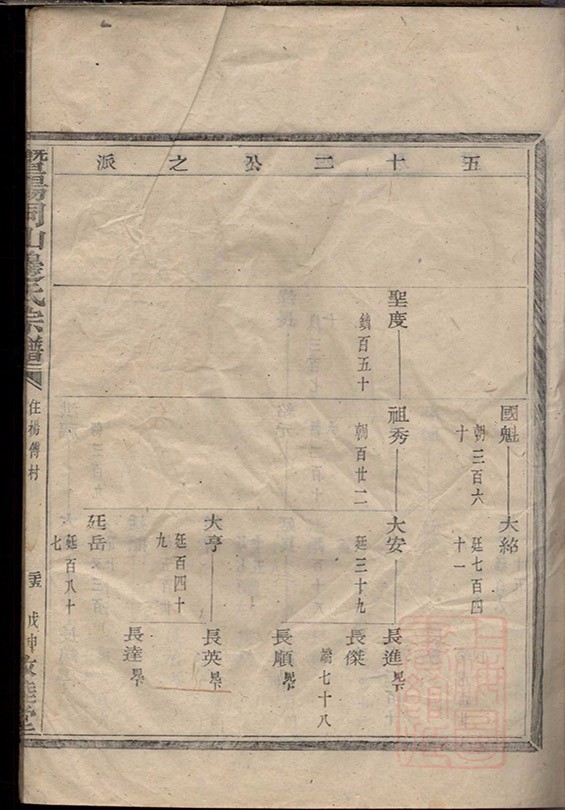 五十二公之派
國魁
朝三百六十
大紹
廷七百四十一
聖度
鏞百五十
祖秀
朝百廿二
大安
廷三十九
長進 見下
長傑
鏞七十八
長順 見下
大亨
廷百四十九
長英 見下
長達 見下
廷岳
廷百八十七
暨陽同山邊氏宗譜
住楊傅村
戊申